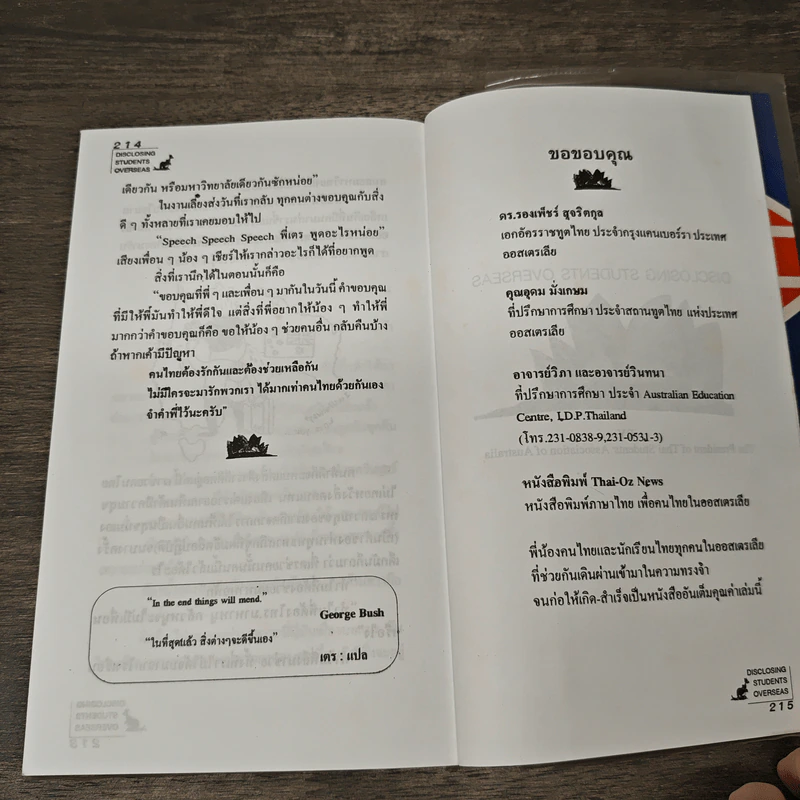 214
DISCLOSING
STUDENTS
OVERSEAS
เดียวกัน หรือมหาวิทยาลัยเดียวกันซักหน่อย”
ในงานเลี้ยงส่งวันที่เรากลับ ทุกคนต่างขอบคุณกับสิ่ง
ดี ๆ ทั้งหลายที่เราเคยมอบให้ไป
“Speech Speech Speech พี่เตร พูดอะไรหน่อย”
เสียงเพื่อน ๆ น้อง ๆ เชียร์ให้เรากล่าวอะไรก็ได้ที่อยากพูด
สิ่งที่เรานึกได้ในตอนนั้นก็คือ
“ขอบคุณที่พี่ ๆ และเพื่อน ๆ มากันในวันนี้ คำขอบคุณ
ที่มีให้พี่มันทำให้พี่ดีใจ แต่สิ่งที่พี่อยากให้น้อง ๆ ทำให้พี่
มากกว่าคำขอบคุณก็คือ ขอให้น้อง ๆ ช่วยคนอื่น กลับคืนบ้าง
ถ้าหากเค้ามีปัญหา
คนไทยต้องรักกันและต้องช่วยเหลือกัน
ไม่มีใครจะมารักพวกเรา ได้มากเท่าคนไทยด้วยกันเอง
จำคำพี่ไว้นะครับ”
“In the end things will mend.”
George Bush
“ในที่สุดแล้ว สิ่งต่างๆจะดีขึ้นเอง”
เตร : แปล
ขอขอบคุณ
ดร.รองเพ็ชร์ สุจริตกุล
เอกอัครราชทูตไทย ประจำกรุงแคนเบอร์รา ประเทศ
ออสเตรเลีย
คุณอุดม มั่งเกษม
ที่ปรึกษาการศึกษา ประจำสถานทูตไทย แห่งประเทศ
ออสเตรเลีย
อาจารย์วิภา และอาจารย์วินทนา
ที่ปรึกษาการศึกษา ประจำ Australian Education
Centre, I.D.P.Thailand
(โทร.231-0838-9,231-0531-3)
หนังสือพิมพ์ Thai-Oz News
หนังสือพิมพ์ภาษาไทย เพื่อคนไทยในออสเตรเลีย
พี่น้องคนไทยและนักเรียนไทยทุกคนในออสเตรเลีย
ที่ช่วยกันเดินผ่านเข้ามาในความทรงจำ
จนก่อให้เกิด-สำเร็จเป็นหนังสืออันเต็มคุณค่าเล่มนี้
DISCLOSING
STUDENTS
OVERSEAS
215